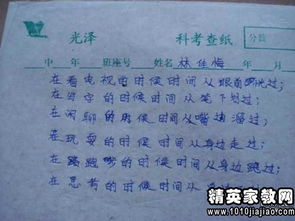 光泽 科考查纸 分数
中 年 班座号 姓名 林佳梅 年 月
在看电视的时候时间从眼前晃过;
在写字的时候时间从笔下划过;
在闲聊的时候时间从嘴边溜过;
在玩耍的时候时间从身边走过;
在跑步的时候时间从身边跑过;
在思考的时候时间从
精英家教网
www.1010jiajiao.com